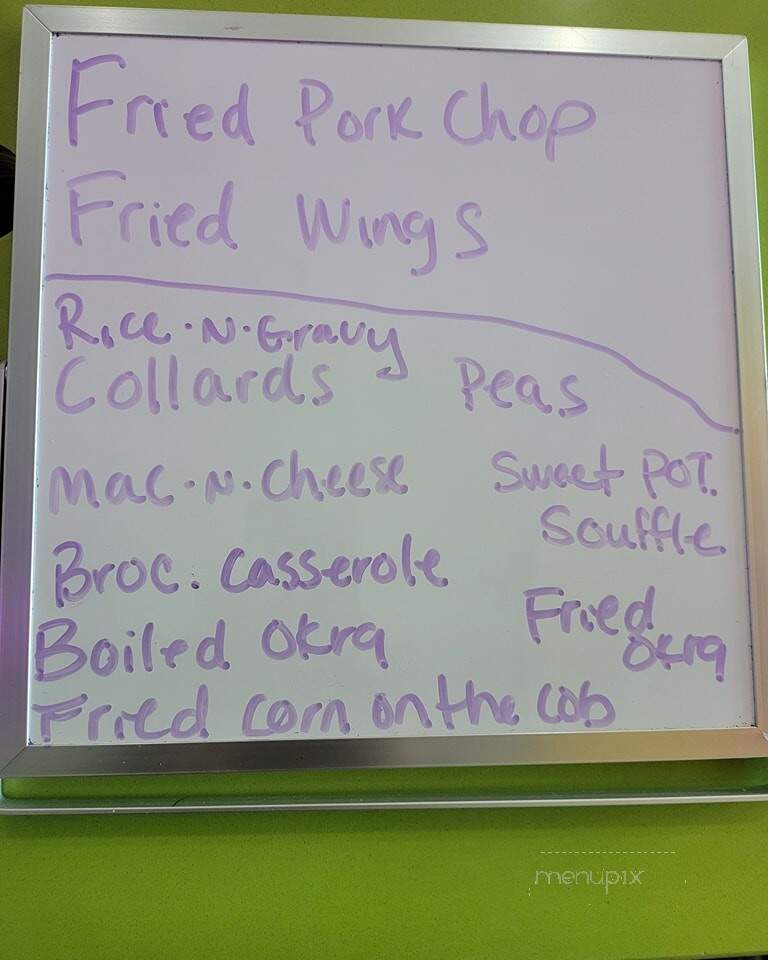 Fried Pork Chop
Fried Wings
Rice·N·Gravy
Collards
Peas
Mac·N·Cheese
Sweet POT.
Souffle
Broc. Casserole
Boiled Okra
Fried
Okra
Fried corn on the cob
menupix